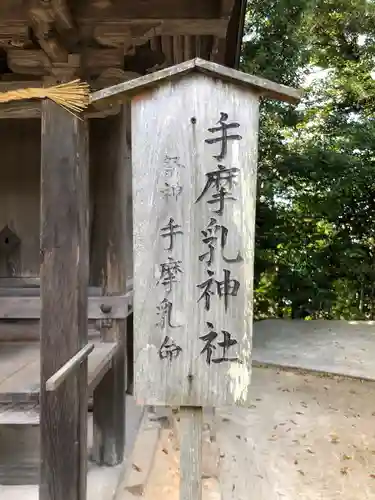 手摩乳神社
祭神 手摩乳命